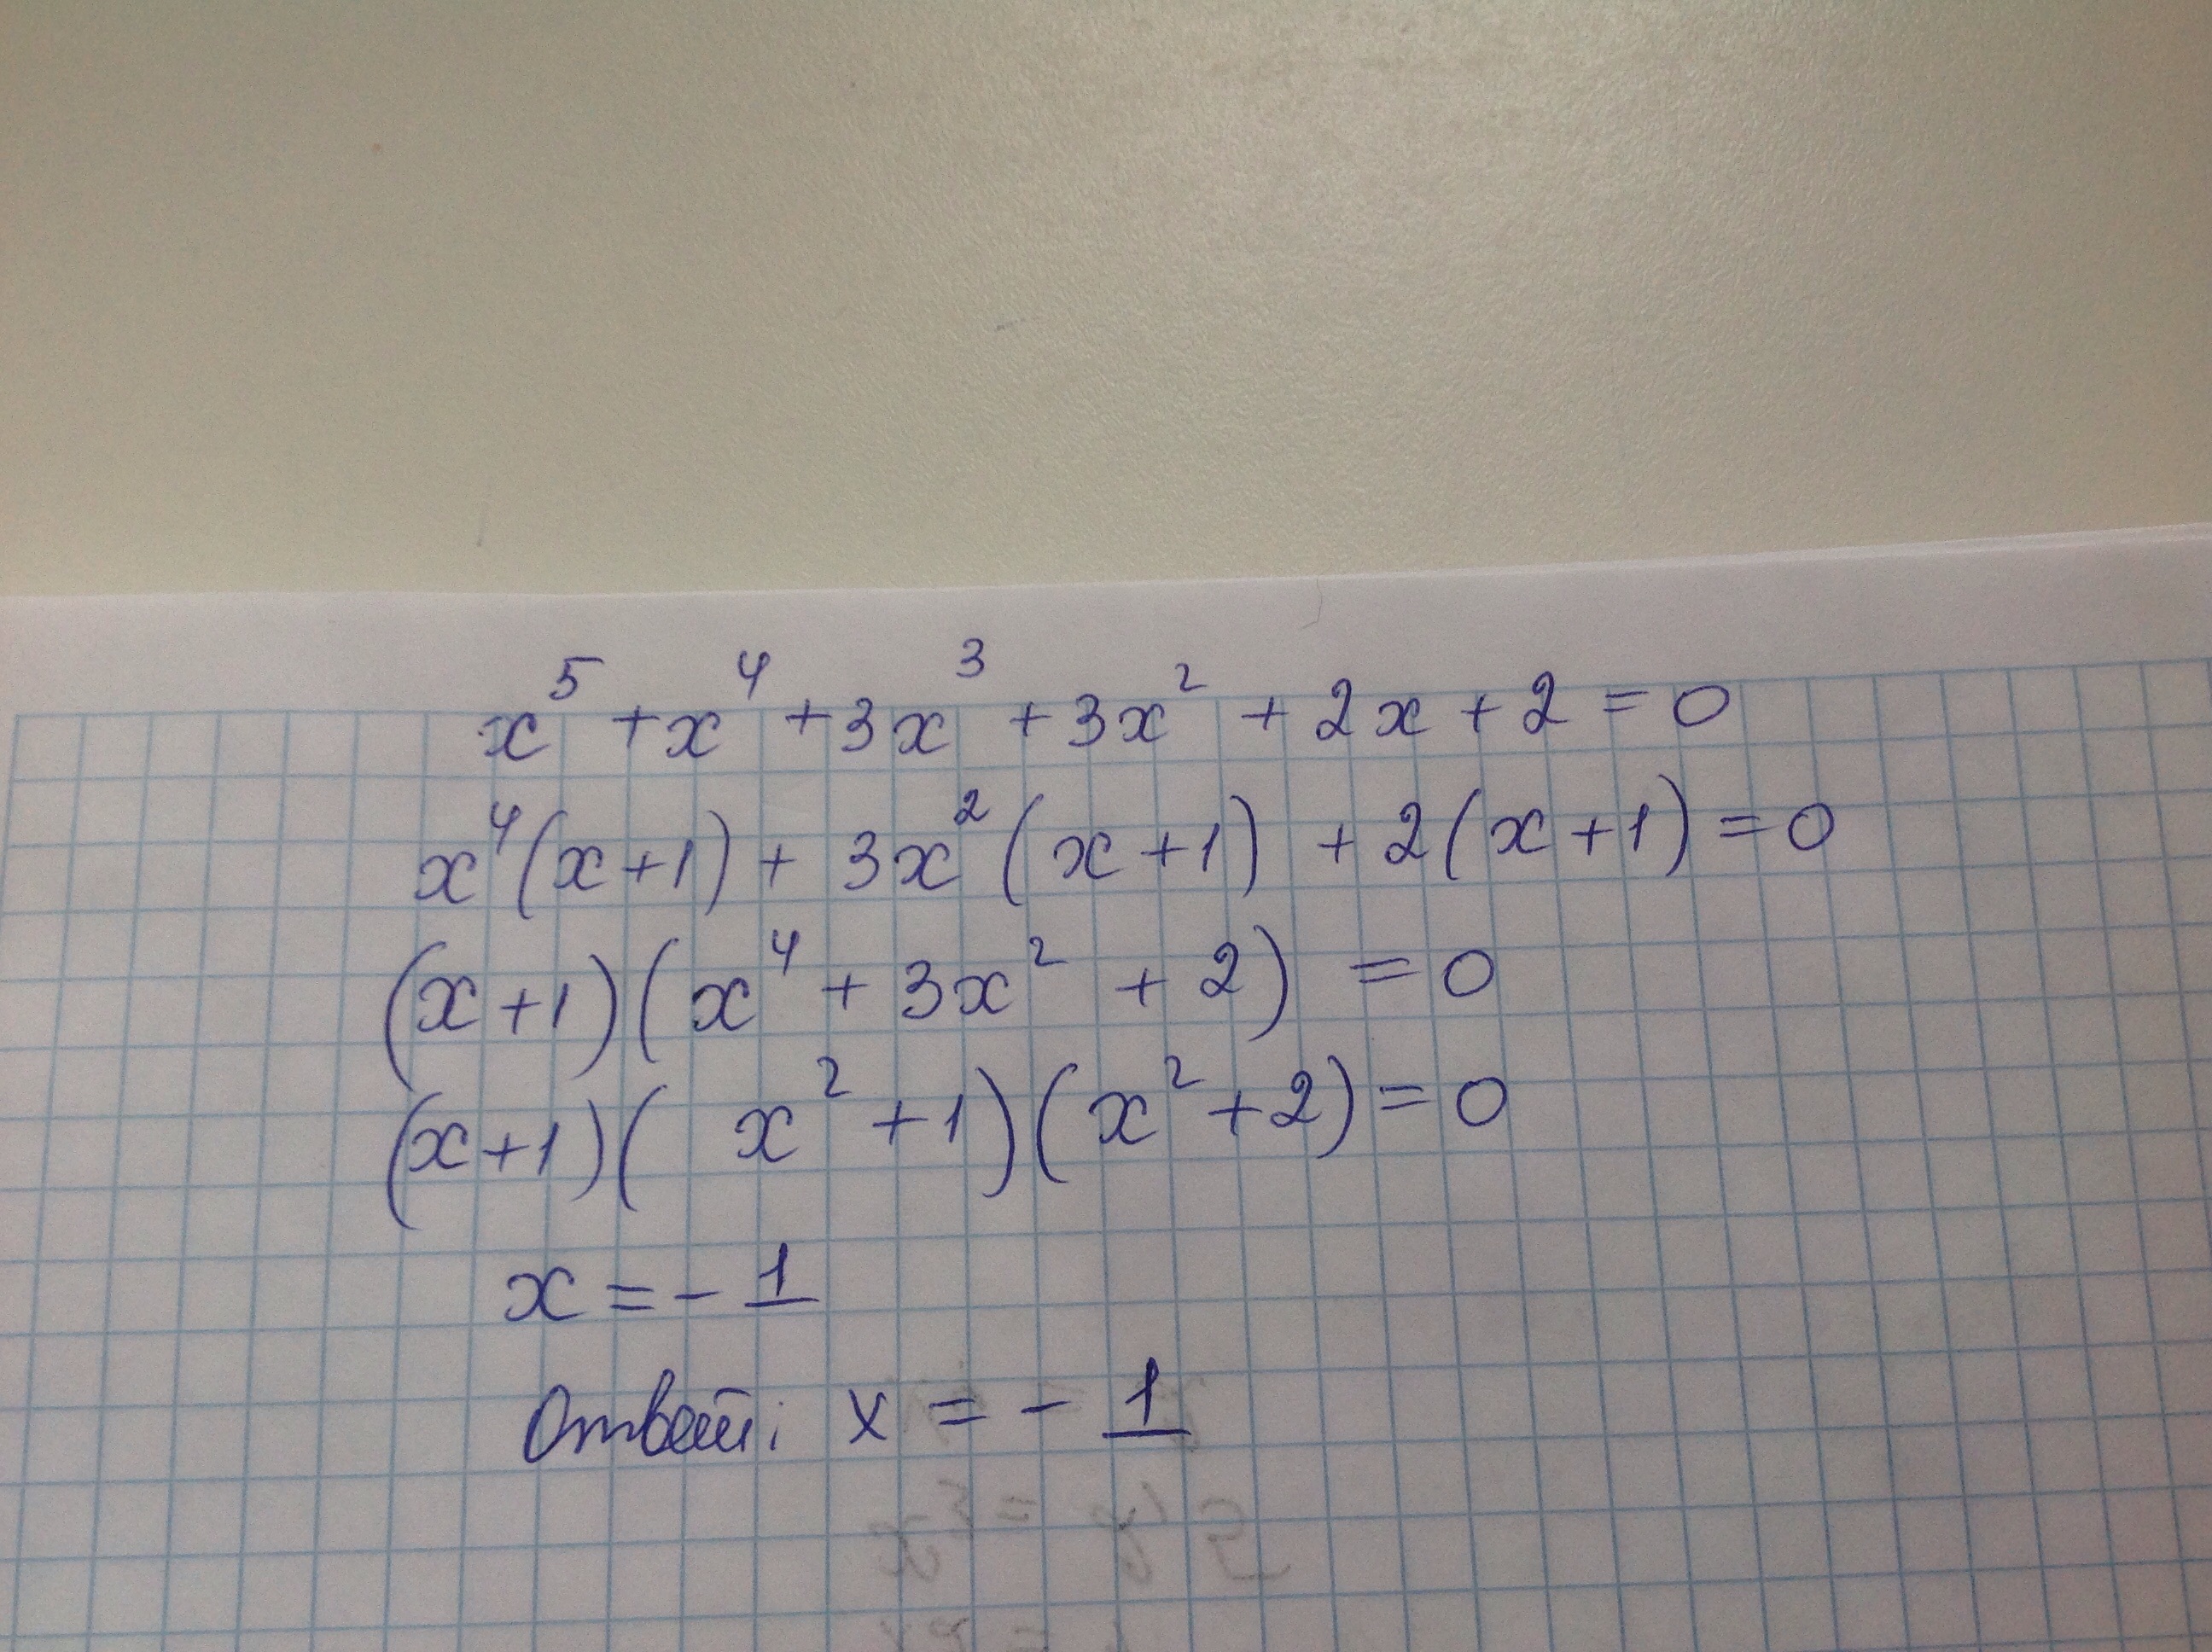 x⁵ + x⁴ + 3x³ + 3x² + 2x + 2 = 0
x⁴(x+1) + 3x²(x+1) + 2(x+1) = 0
(x+1)(x⁴ + 3x² + 2) = 0
(x+1)(x² + 1)(x² + 2) = 0
x = - 1
Ответ: x = - 1